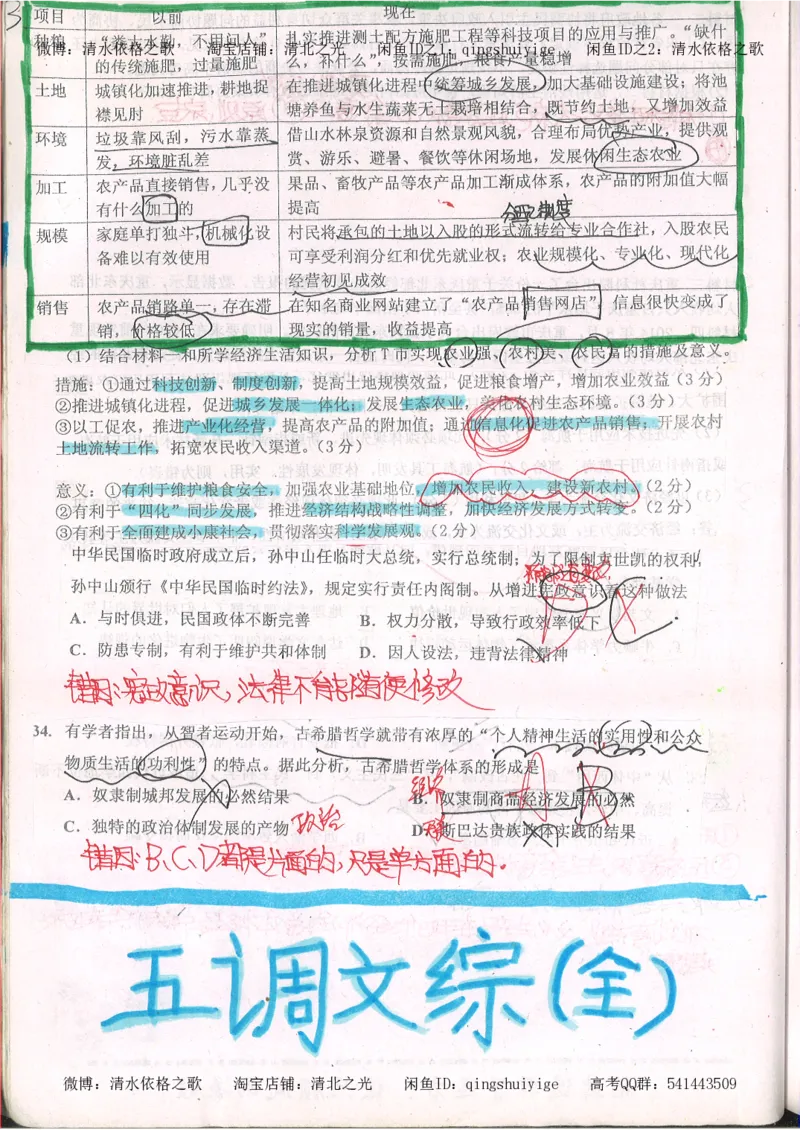 项目 以前 现在
种粮 “粪大水勤,不用问人” 扎实推进测土配方施肥工程等科技项目的应用与推广。“缺什
微博:清水依格之歌 淘宝店铺:清北之光 闲鱼ID之1:qingshuiyige 闲鱼ID之2:清水依格之歌
的传统施肥,过量施肥 么,补什么”,按需施肥,粮食产量稳增
土地 城镇化加速推进,耕地捉 在推进城镇化进程中统筹城乡发展,加大基础设施建设;将池
襟见肘 塘养鱼与水生蔬菜无土栽培相结合,既节约土地,又增加效益
环境 垃圾靠风刮,污水靠蒸 借山水林泉资源和自然景观风貌,合理布局优势产业,提供观
发,环境脏乱差 赏、游乐、避暑、餐饮等休闲场地,发展休闲生态农业
加工 农产品直接销售,几乎没 果品、畜牧产品等农产品加工渐成体系,农产品的附加值大幅
有什么加工的 提高
分配制度
规模 家庭单打独斗,机械化设 村民将承包的土地以入股的形式流转给专业合作社,入股农民
备难以有效使用 可享受利润分红和优先就业权;农业规模化、专业化、现代化
经营初见成效
销售 农产品销路单一,存在滞 在知名商业网站建立了“农产品销售网店”,信息很快变成了
销,价格较低 现实的销量,收益提高
(1)结合材料一和所学经济生活知识,分析T市实现农业强、农村美、农民富的措施及意义。
措施:①通过科技创新、制度创新,提高土地规模效益,促进粮食增产,增加农业效益(3分)
②推进城镇化进程,促进城乡发展一体化;发展生态农业,美化农村生态环境。(3分)
③以工促农,推进产业化经营,提高农产品的附加值;通过信息化促进农产品销售,开展农村
土地流转工作,拓宽农民收入渠道。(3分)
意义:①有利于维护粮食安全,加强农业基础地位,增加农民收入,建设新农村。(2分)
②有利于“四化”同步发展,推进经济结构战略性调整,加快经济发展方式转变。(2分)
③有利于全面建成小康社会,贯彻落实科学发展观。(2分)
中华民国临时政府成立后,孙中山任临时大总统,实行总统制;为了限制袁世凯的权利,
孙中山颁行《中华民国临时约法》,规定实行责任内阁制。从增进宪政意识看这种做法
A.与时俱进,民国政体不断完善 B.权力分散,导致行政效率低下
C.防患专制,有利于维护共和体制 D.因人设法,违背法律精神
错因:宪政意识,法律不能随便修改
34. 有学者指出,从智者运动开始,古希腊哲学就带有浓厚的“个人精神生活的实用性和公众
物质生活的功利性”的特点。据此分析,古希腊哲学体系的形成是
A.奴隶制城邦发展的必然结果 经济 B.奴隶制商品经济发展的必然
C.独特的政治体制发展的产物 政治 D.斯巴达贵族政体实践的结果
错因:B、C、D都是片面的,只是单方面的.
五调文综(全)
微博:清水依格之歌 淘宝店铺:清北之光 闲鱼ID:qingshuiyige 高考QQ群:541443509